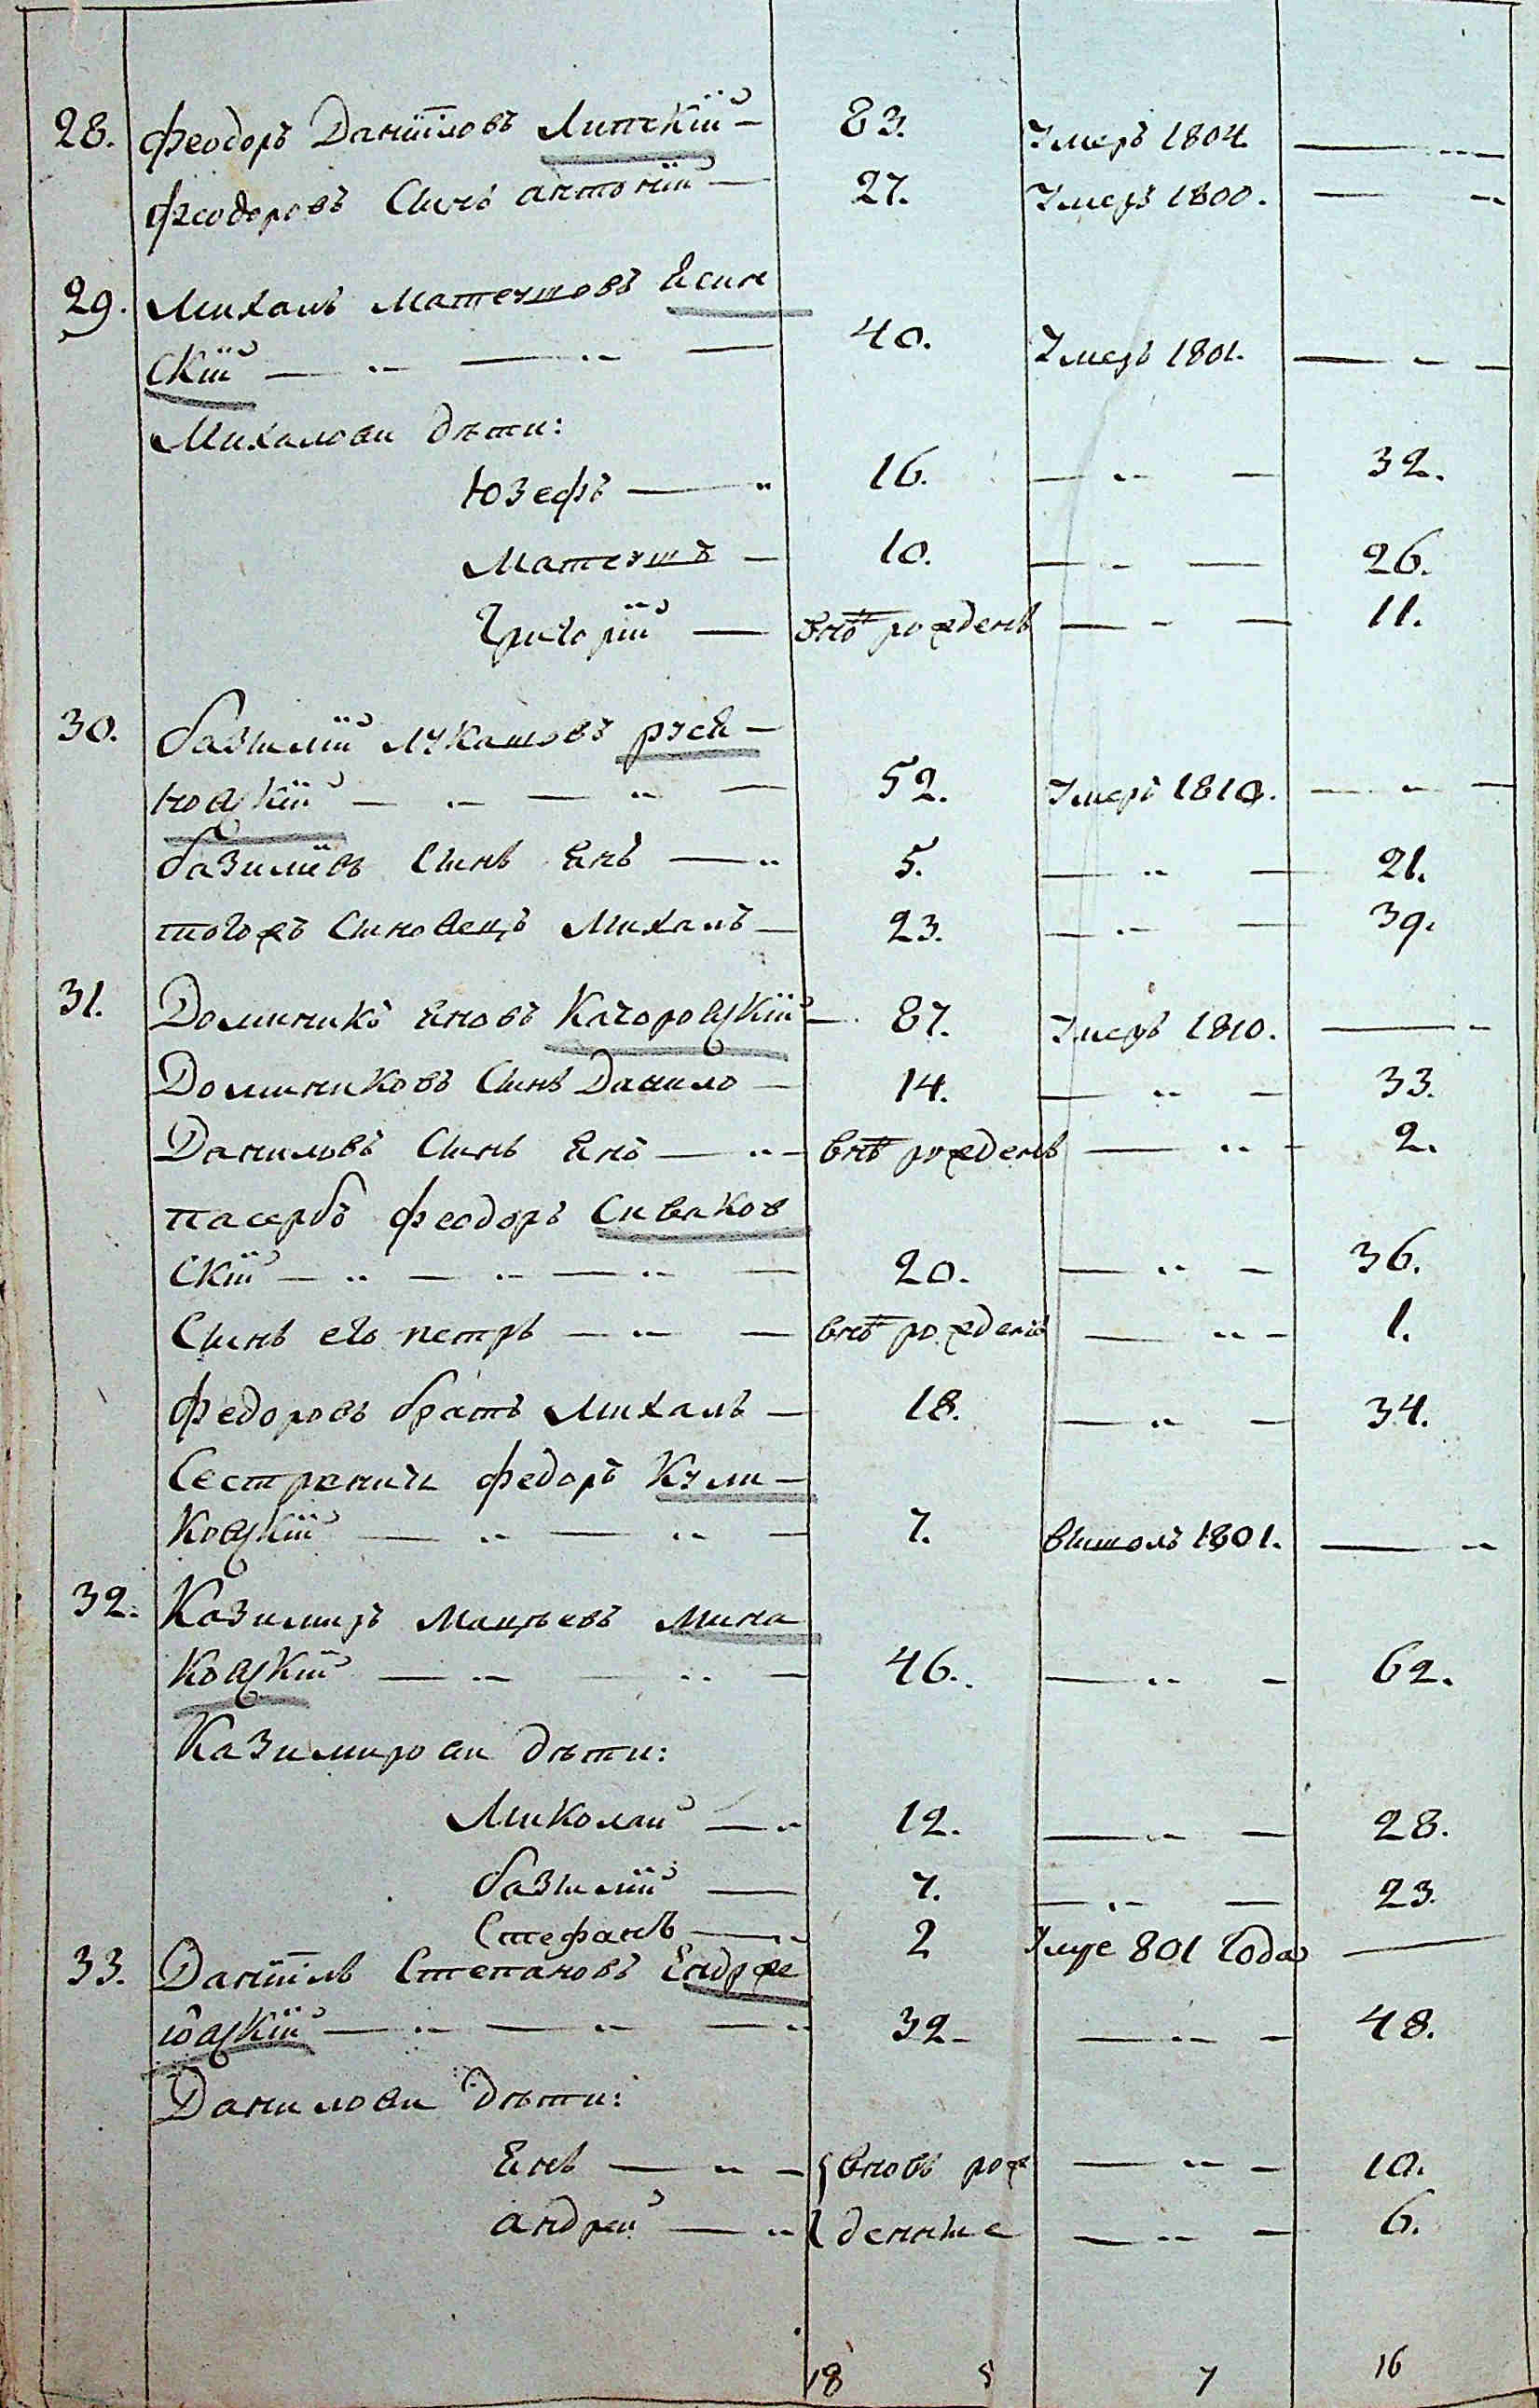 28. Феодоръ Даниіловъ Липскій — 83. Умеръ 1804. —
Феодоровъ Синъ антоній — 27. Умеръ 1800. —
29. Михалъ Матеушовъ Ясин
скій — 40. Умеръ 1801. —
Михалови дѣти:
Юзефъ — 16. — 32.
Матеушъ — 10. — 26.
Григорій — внѡ рожденъ — 11.
30. базилій Лукашовъ руся-
новскій — 52. Умеръ 1810. —
базиліевъ Синъ Янъ — 5. — 21.
тогожъ Синовецъ Михалъ — 23. — 39.
31. Доминикъ Яновъ Качоровскій — 87. Умеръ 1810. —
Доминиковъ Синъ Данило — 14. — 33.
Даниловъ Синъ Янъ — внѡ рожденъ — 2.
пасербъ феодоръ Сиваков
скій — 20. — 36.
Синъ его петръ — внѡ рожденъ — 1.
Федоровъ братъ Михалъ — 18. — 34.
Сестренич федоръ Кули-
ковскій — 7. вишолъ 1801. —
32. Казимиръ Мацѣевъ Мина
ковскій — 46. — 62.
Казимирови дѣти:
Миколай — 12. — 28.
базилій — 7. — 23.
Стефанъ — 2 Уме 801 Года —
33. Даніилъ Степановъ Ендрже
іовскій — 32 — 48.
Данилови дѣти:
Янъ — вновь рож — 10.
андрей — денние — 6.
18 5 7 16